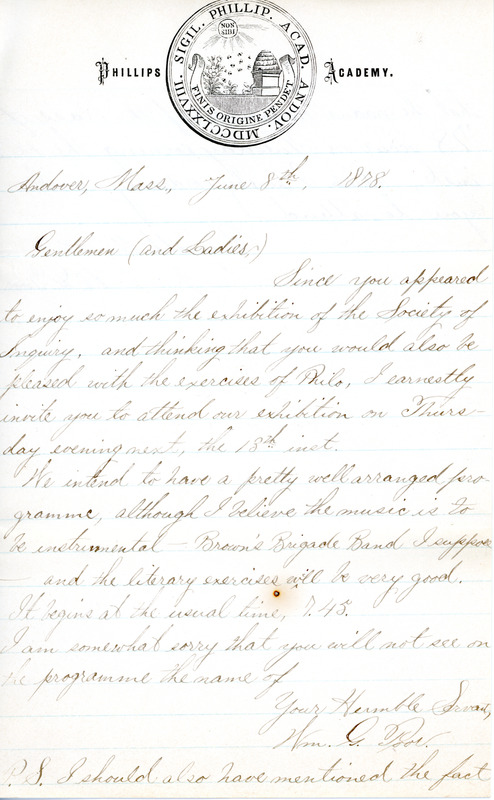 SIGIL. PHILLIP. ACAD. ANDOV. MDCCLXXVIII.
NON SIBI
FINIS ORIGINE PENDET
PHILLIPS ACADEMY.
Andover, Mass., June 8th, 1878.
Gentlemen (and Ladies,)
Since you appeared
to enjoy so much the exhibition of the Society of
Inquiry, and thinking that you would also be
pleased with the exercises of Philo, I earnestly
invite you to attend our exhibition on Thurs-
day evening next, the 13th inst.
We intend to have a pretty well arranged pro-
gramme, although I believe the music is to
be instrumental – Brown's Brigade Band I suppose
– and the literary exercises will be very good.
It begins at the usual time, 7.45.
I am somewhat sorry that you will not see on
the programme the name of
Your Humble Servant,
Wm. G.
P.S. I should also have mentioned the fact